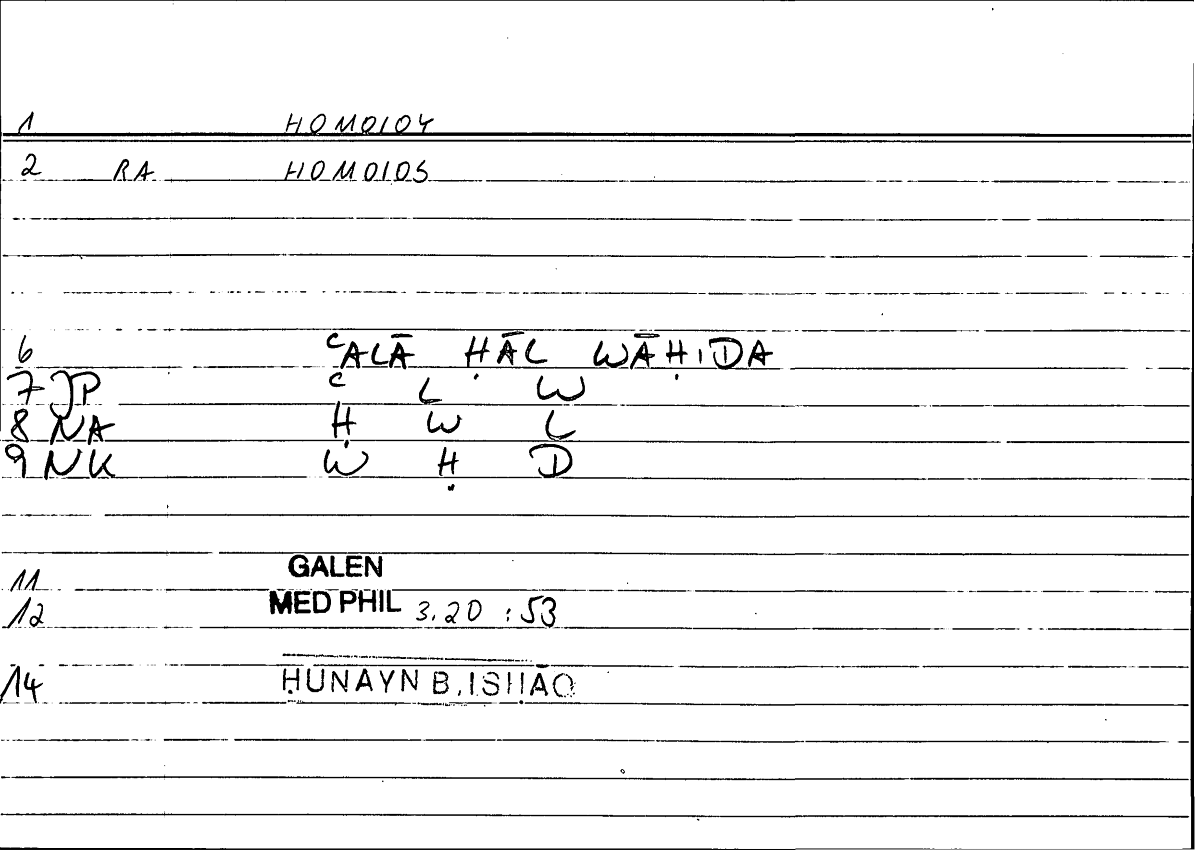 1 HOMOIOY
2 RA HOMOIOS
6 ꜤALĀ ḤĀL WĀḤIDA
7 JP Ꜥ L W
8 NA Ḥ W L
9 NK W Ḥ D
11 GALEN
12 MED PHIL 3.20 :53
14 ḤUNAYN B.ISḤĀQ